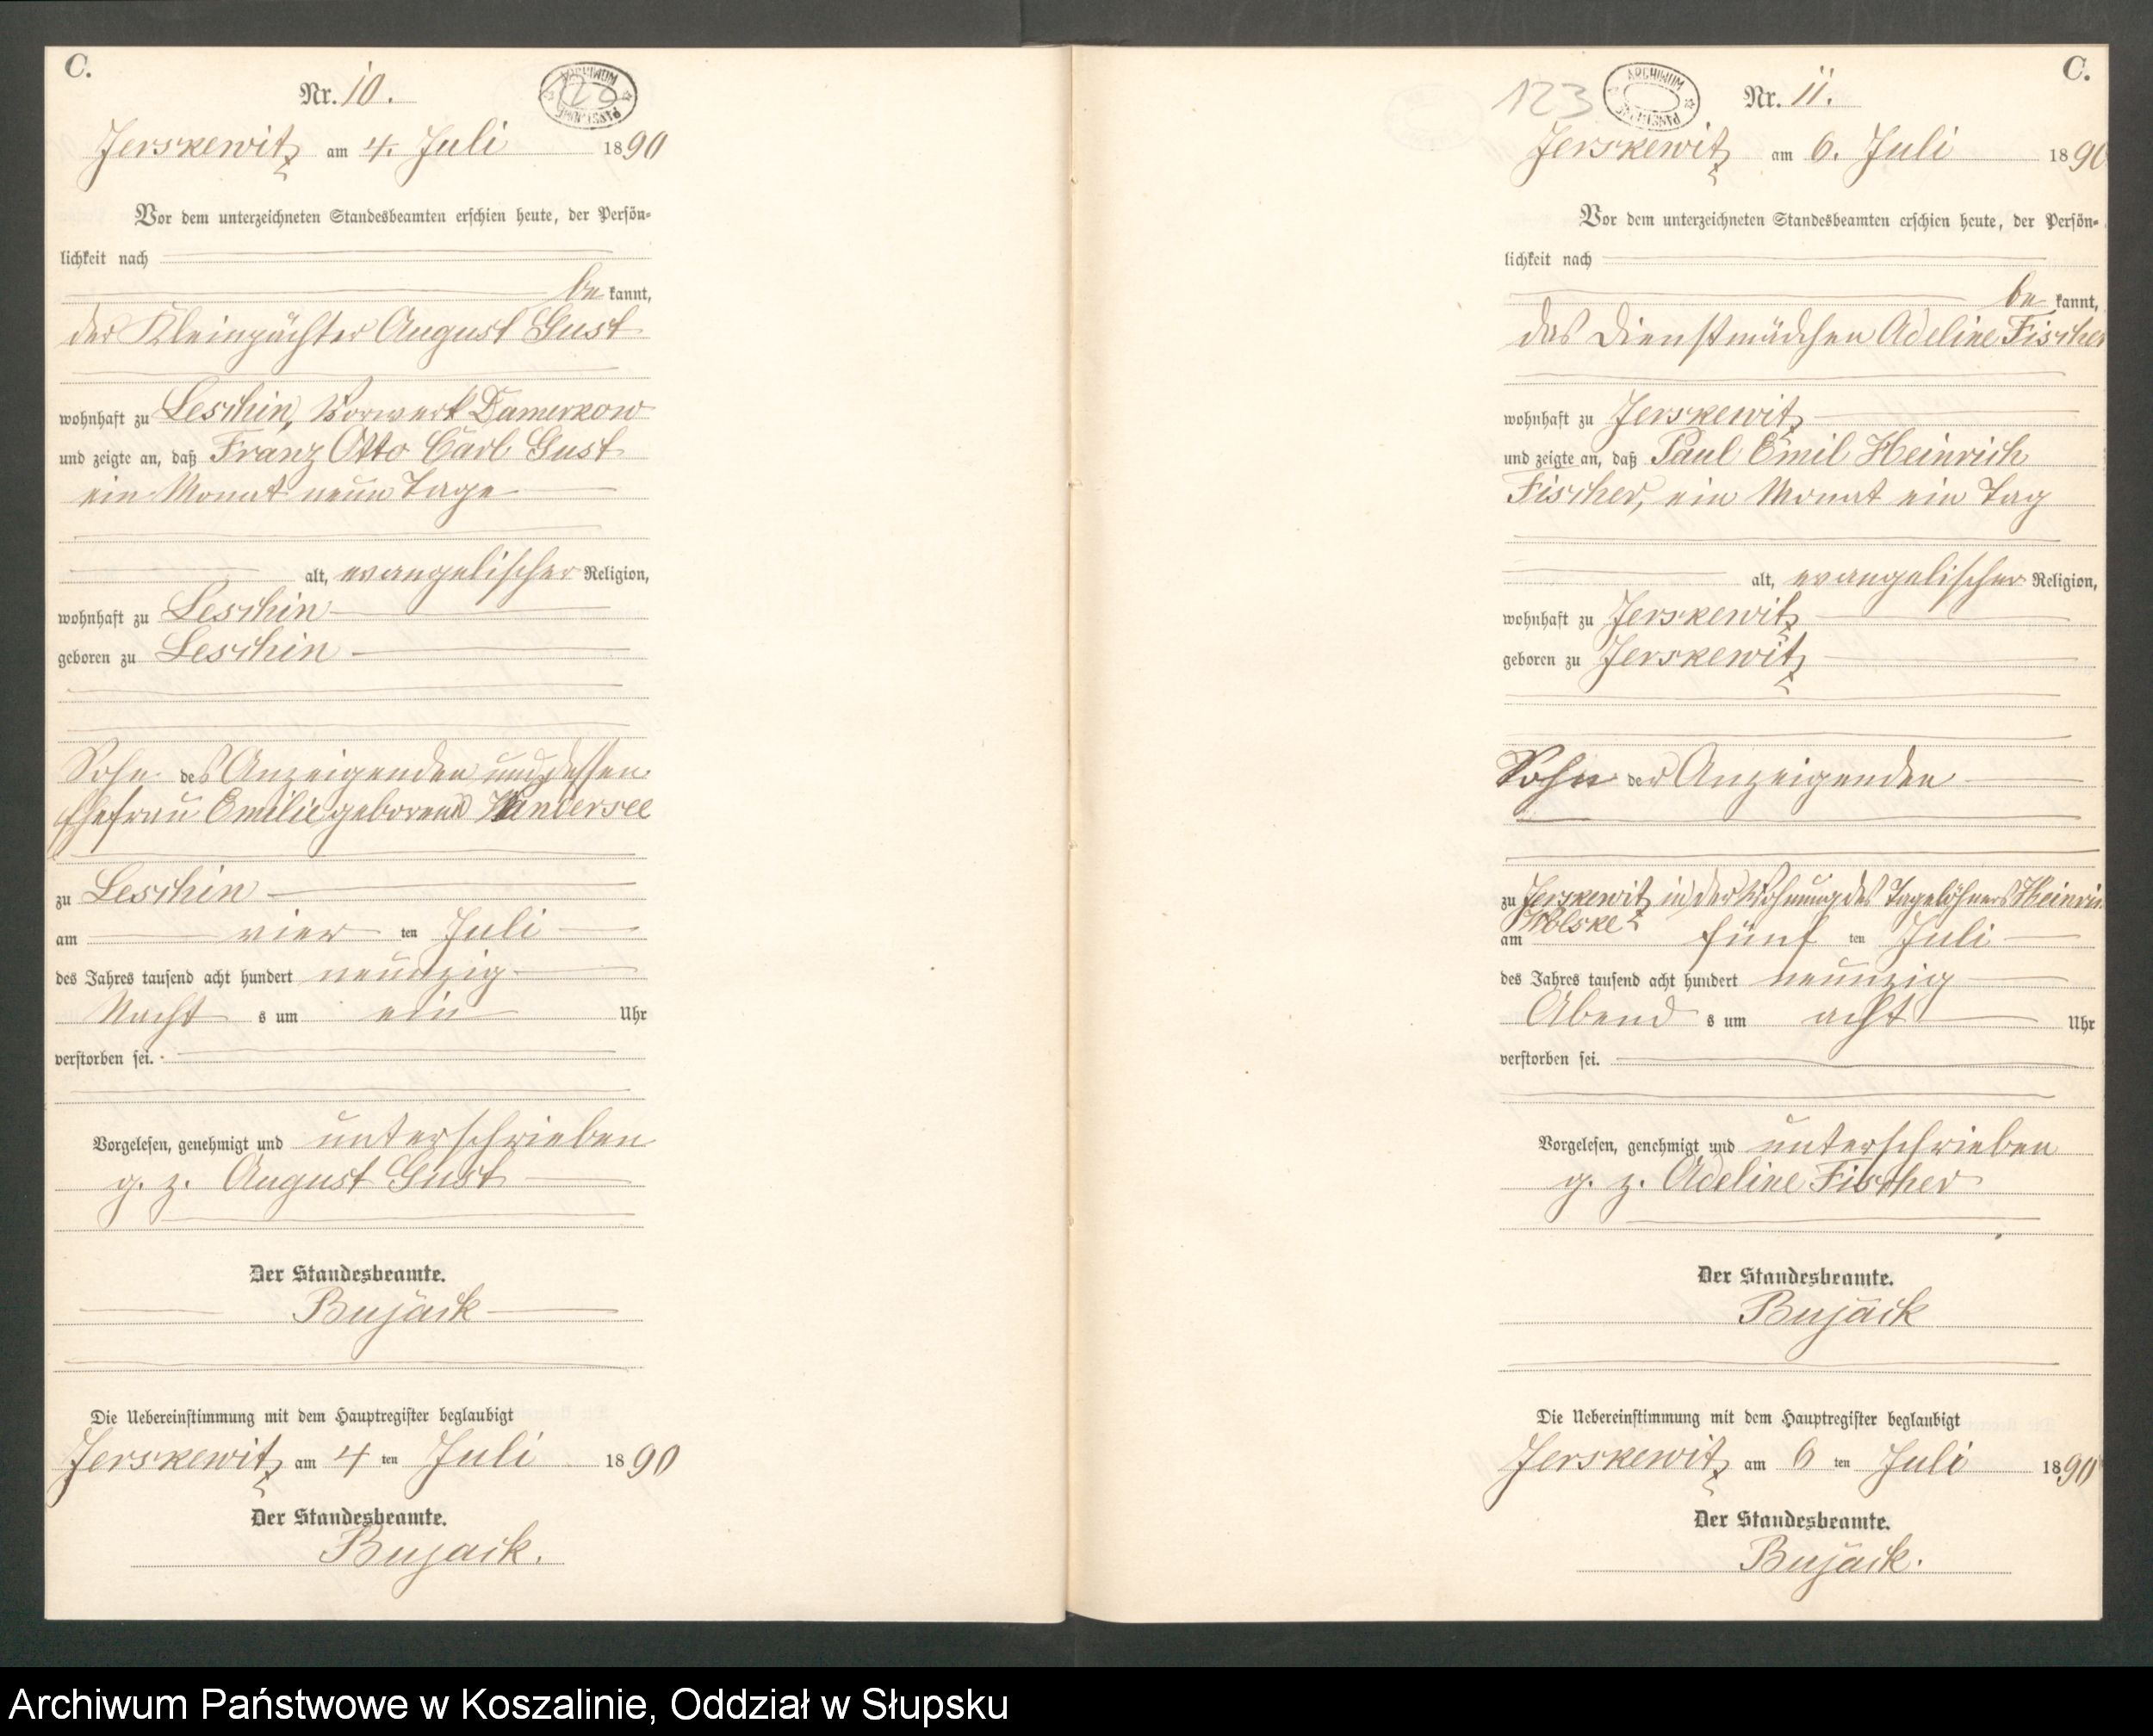 C.
Nr. 10.
ARCHIWUM PAŃSTWOWE
Jerskewitz am 4. Juli 1890
Vor dem unterzeichneten Standesbeamten erschien heute, der Persön-
lichkeit nach
be kannt,
der Kleinpächter August Gust
wohnhaft zu Leschin, Vorwerk Damerkow
und zeigte an, daß Franz Otto Carl Gust
ein Monat neun Tage
alt, evangelischer Religion,
wohnhaft zu Leschin
geboren zu Leschin
Sohn des Anzeigenden und dessen
Ehefrau Emilie geborene Vandersee
zu Leschin
am vier ten Juli
des Jahres tausend acht hundert neunzig
Nacht s um ein Uhr
verstorben sei.
Vorgelesen, genehmigt und unterschrieben
g. z. August Gust
Der Standesbeamte.
Bujack
Die Uebereinstimmung mit dem Hauptregister beglaubigt
Jerskewitz am 4 ten Juli 1890
Der Standesbeamte.
Bujack.
C.
123
ARCHIWUM PAŃSTWOWE
Nr. 11.
Jerskewitz am 6. Juli 1890
Vor dem unterzeichneten Standesbeamten erschien heute, der Persön-
lichkeit nach
be kannt,
das Dienstmädchen Adeline Fischer
wohnhaft zu Jerskewitz
und zeigte an, daß Paul Emil Heinrich
Fischer, ein Monat ein Tag
alt, evangelischer Religion,
wohnhaft zu Jerskewitz
geboren zu Jerskewitz
Sohn der Anzeigenden
zu Jerskewitz in der Wohnung des Tagelöhners Heinrich
Wolske
am fünf ten Juli
des Jahres tausend acht hundert neunzig
Abend s um acht Uhr
verstorben sei.
Vorgelesen, genehmigt und unterschrieben
g. z. Adeline Fischer
Der Standesbeamte.
Bujack
Die Uebereinstimmung mit dem Hauptregister beglaubigt
Jerskewitz am 6 ten Juli 1890
Der Standesbeamte.
Bujack.
Archiwum Państwowe w Koszalinie, Oddział w Słupsku